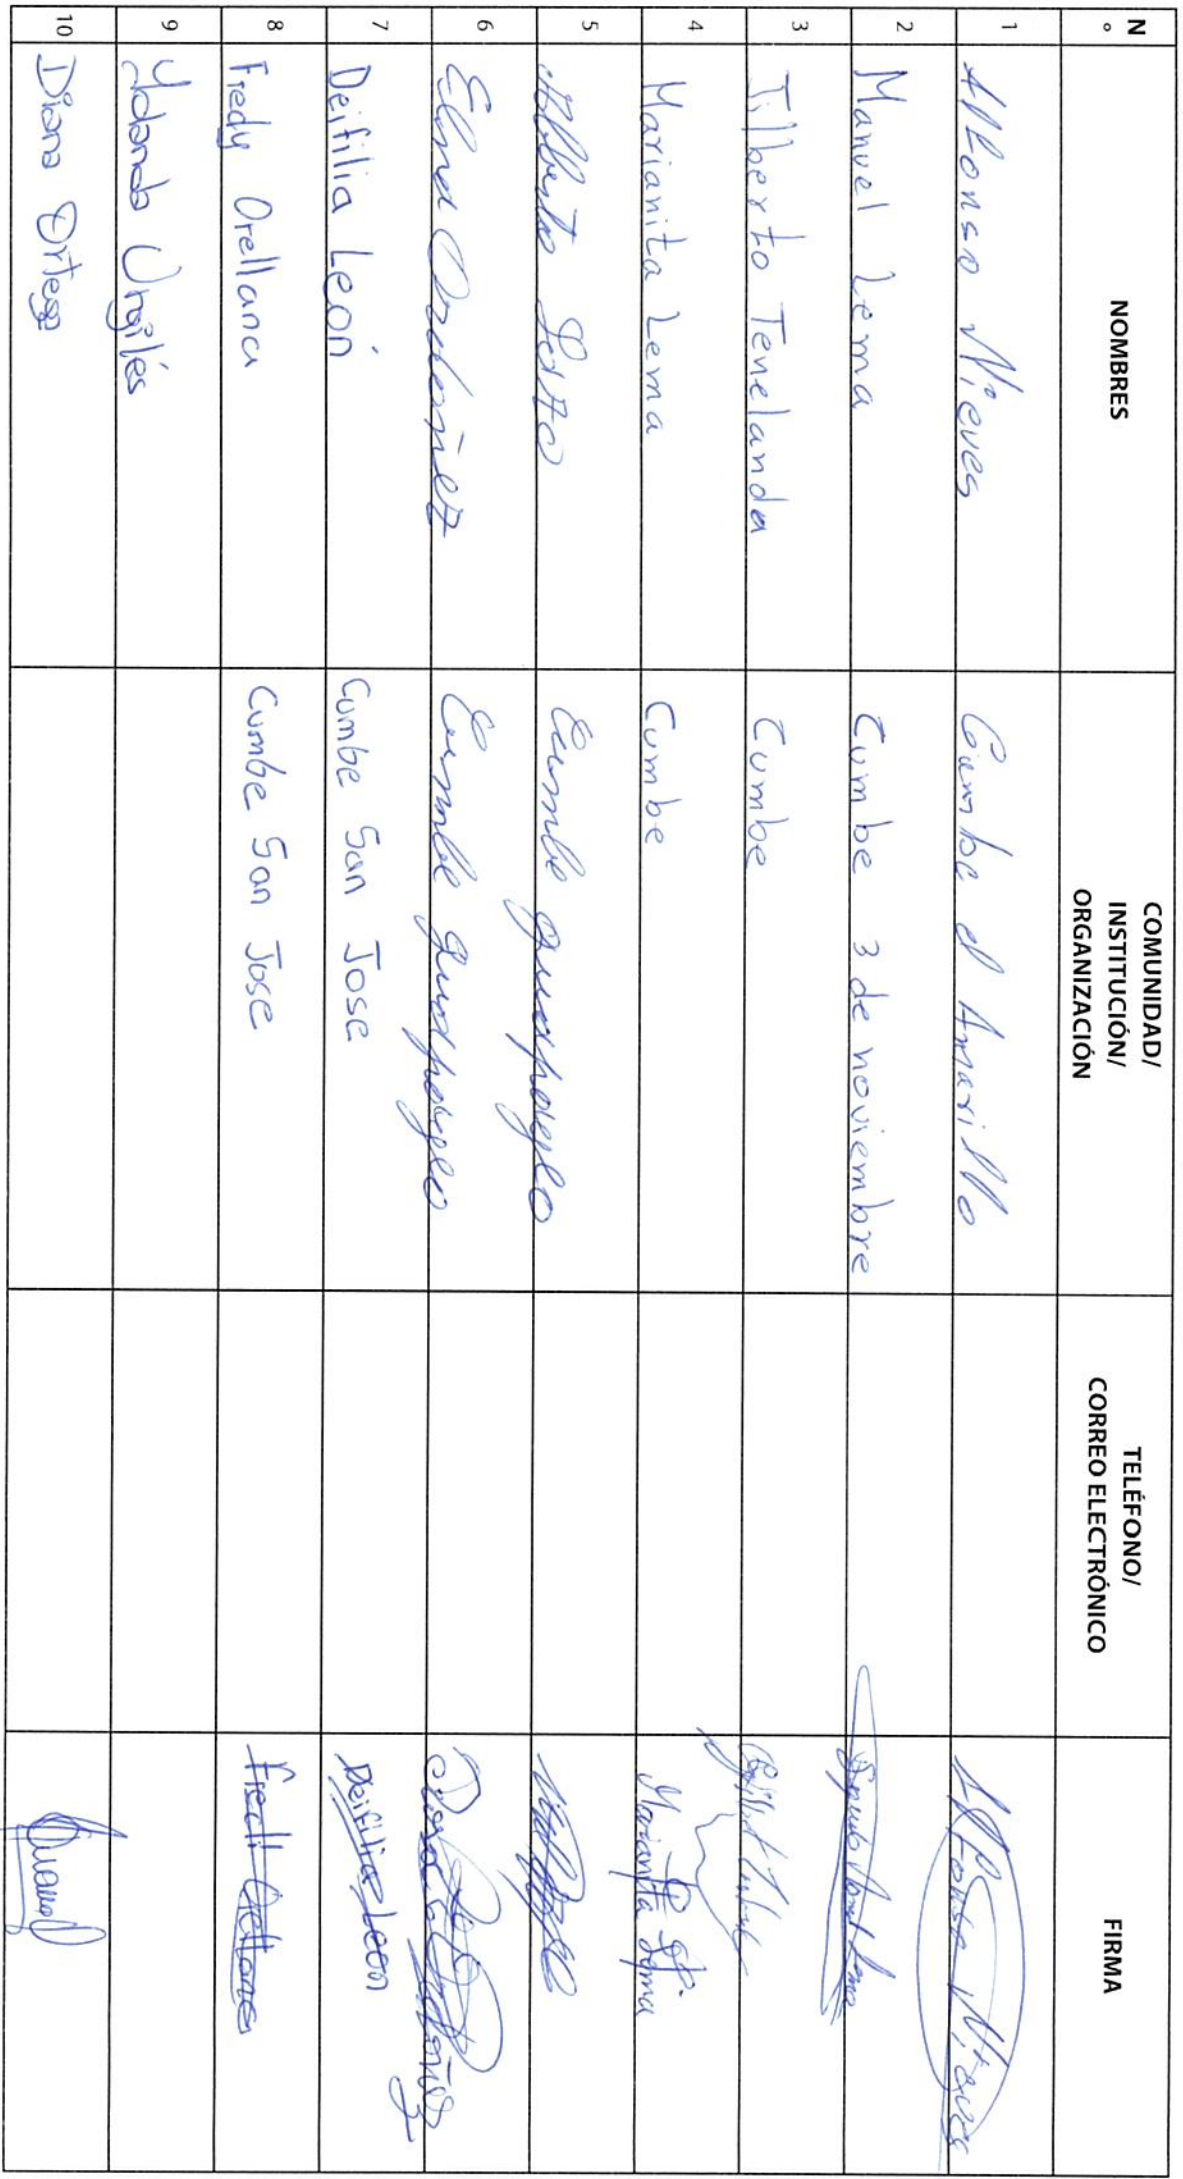 N° NOMBRES COMUNIDAD/ INSTITUCIÓN/ ORGANIZACIÓN TELÉFONO/ CORREO ELECTRÓNICO FIRMA
1 Alfonso Nieves Cumbe el Amarillo Alfonso Nieves
2 Manuel Lema Cumbe 3 de noviembre
3 Tilberto Tenelanda Cumbe
4 Marianita Lema Cumbe Marianita Lema
5 Alberto Cumbe
6 Elsa Ordoñez Cumbe
7 Deifilia León Cumbe San Jose Deifilia Leon
8 Fredy Orellana Cumbe San Jose
9 Yolanda Urgilés
10 Diana Ortega